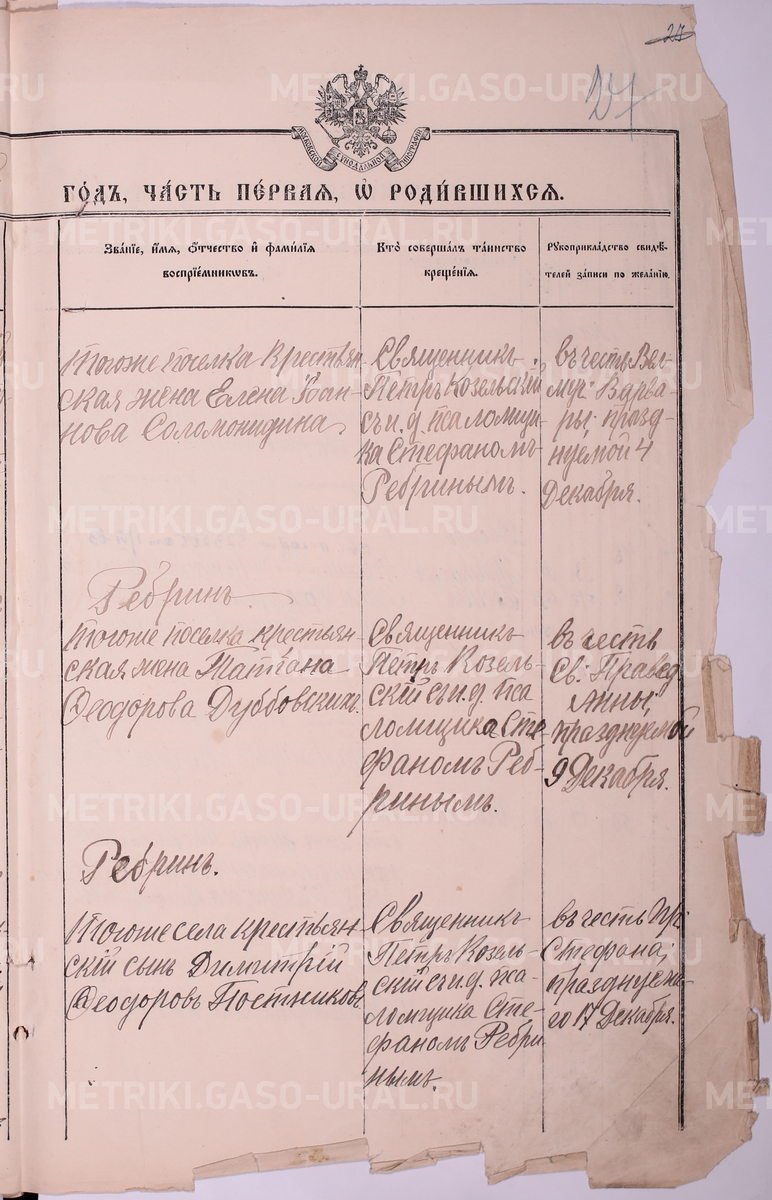 27
27
МОСКОВСКОЙ СѴНОДАЛЬНОЙ ТИПОГРАФІИ
ГО́ДЪ, ЧА́СТЬ ПЕ́РВАЯ, Ѽ РОДИ́ВШИХСЯ.
Зва́ніе, и́мя, ѻ́тчество и҆ фами́лія
воспріе́мниковъ.
Кто̀ соверша́лъ та́инство
креще́нія.
Рꙋкоприкла́дство свидѣ́-
телей за́писи по жела́нію.
Тогоже поселка крестьян
ская жена Елена Іоан-
нова Соломонидина.
Священникъ
Петръ Козельскій
съ и. д. псаломщи
ка Стефаномъ
Ребринымъ.
въ честь Вел-
муч: Варва-
ры; празд-
нуемой 4
Декабря.
Ребринъ
Тогоже поселка крестьян
ская жена Татіана
Ѳеодорова Дуббовскихъ.
Священникъ
Петръ Козель-
скій съ и. д. пса
ломщика Сте-
фаномъ Реб-
ринымъ.
въ честь
Св: Правед
Анны,
празднуемой
9 Декабря.
Ребринъ.
Тогоже села крестьян-
скій сынъ Димитрій
Ѳеодоровъ Постниковъ
Священникъ
Петръ Козель-
скій съ и. д. пса-
ломщика Сте-
фаномъ Ребри
нымъ.
въ честь Пр:
Стефана;
празднуема-
го 17 Декабря.
METRIKI.GASO-URAL.RU